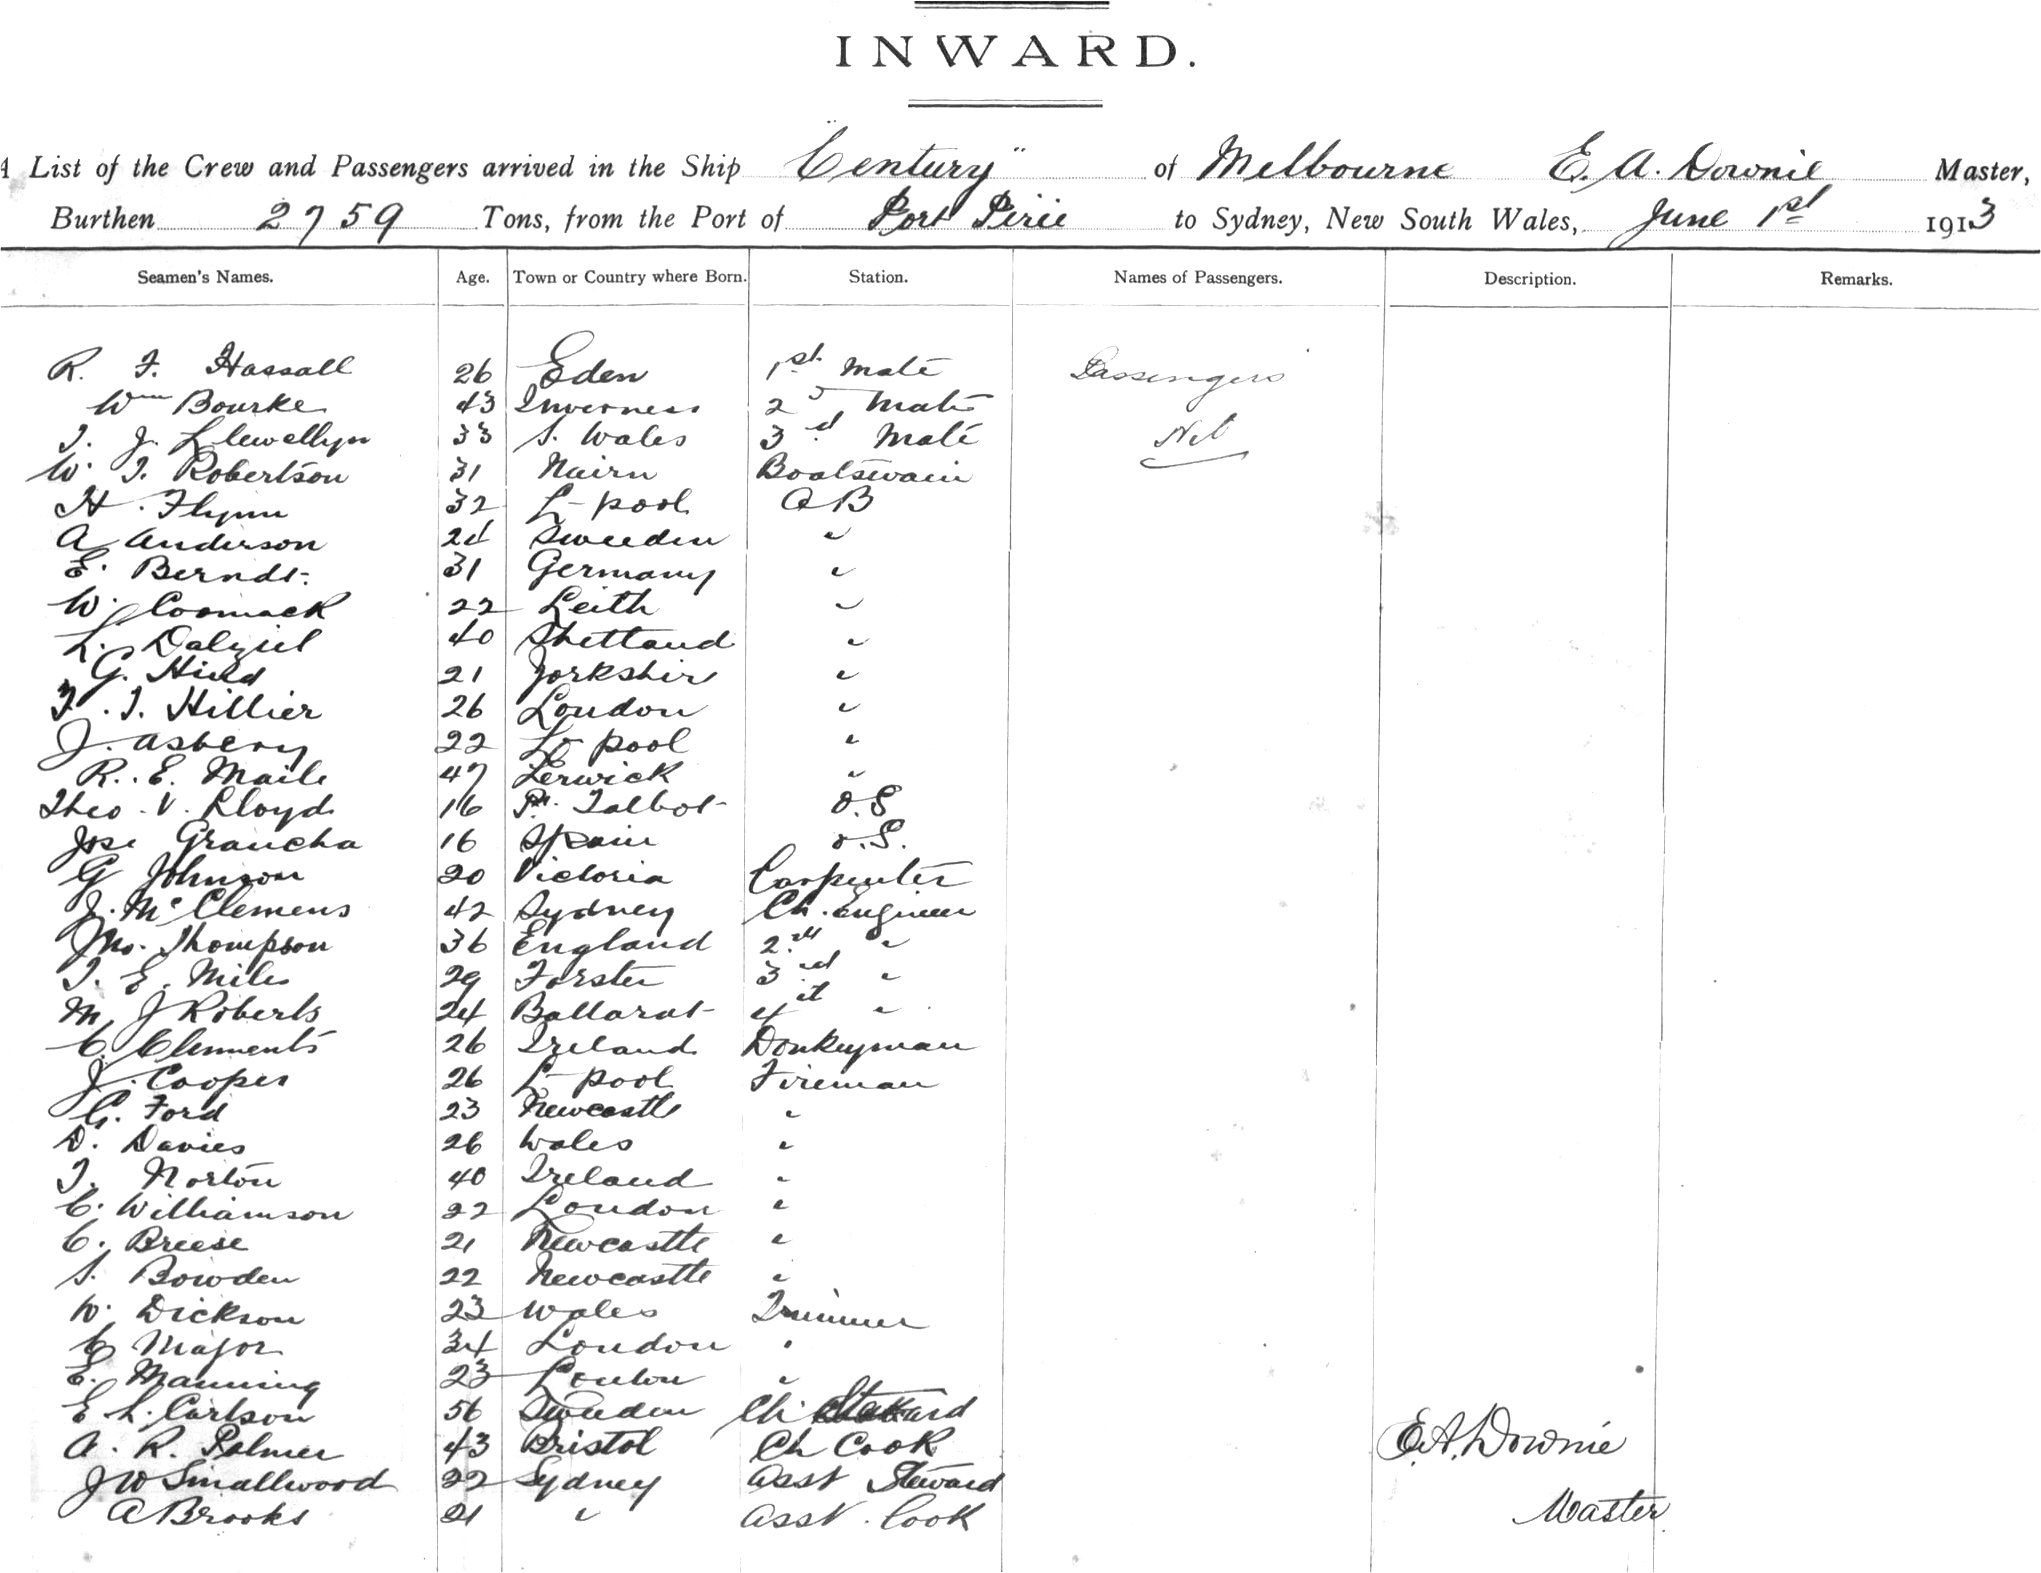 INWARD.
A List of the Crew and Passengers arrived in the Ship "Century" of Melbourne E. A. Downie Master,
Burthen 2759 Tons, from the Port of Port Pirie to Sydney, New South Wales, June 1st 1913
Seamen's Names. Age. Town or Country where Born. Station. Names of Passengers. Description. Remarks.
R. F. Hassall 26 Eden 1st Mate Passengers
Wm Bourke 43 Inverness 2nd Mate
T. J. Llewellyn 33 S. Wales 3rd Mate Nil
W. T. Robertson 31 Nairn Boatswain
H. Flynn 32 L-pool AB
A Anderson 24 Sweeden "
E. Berndt. 31 Germany "
W. Cormack 22 Leith "
L. Dalziel 40 Shetland "
G. Hield 21 Yorkshir "
F. T. Hillier 26 London "
J. Asbery 22 L-pool "
R. E. Maile 47 Lerwick "
Theo. V. Lloyd 16 Pt. Talbot O.S.
Jose Graucha 16 Spain O.S.
G Johnson 20 Victoria Carpenter
J. McClemens 42 Sydney Ch. Engineer
Jno. Thompson 36 England 2nd "
T. E. Miles 29 Forster 3rd "
M. J Roberts 24 Ballarat 4th "
C. Clements 26 Ireland Donkeyman
J. Cooper 26 L-pool Fireman
G. Ford 23 Newcastle "
D. Davies 26 Wales "
T. Norton 40 Ireland "
C. Williamson 22 London "
C. Breese 21 Newcastle "
S. Bowden 22 Newcastle "
W. Dickson 23 Wales Trimmer
C Major 34 London "
E. Manning 23 London "
E L. Carlson 56 Sweeden Ch. Steward
A. R. Palmer 43 Bristol Ch Cook E.A. Downie
J W Smallwood 22 Sydney Asst Steward
A Brooks 21 " Asst. Cook Master